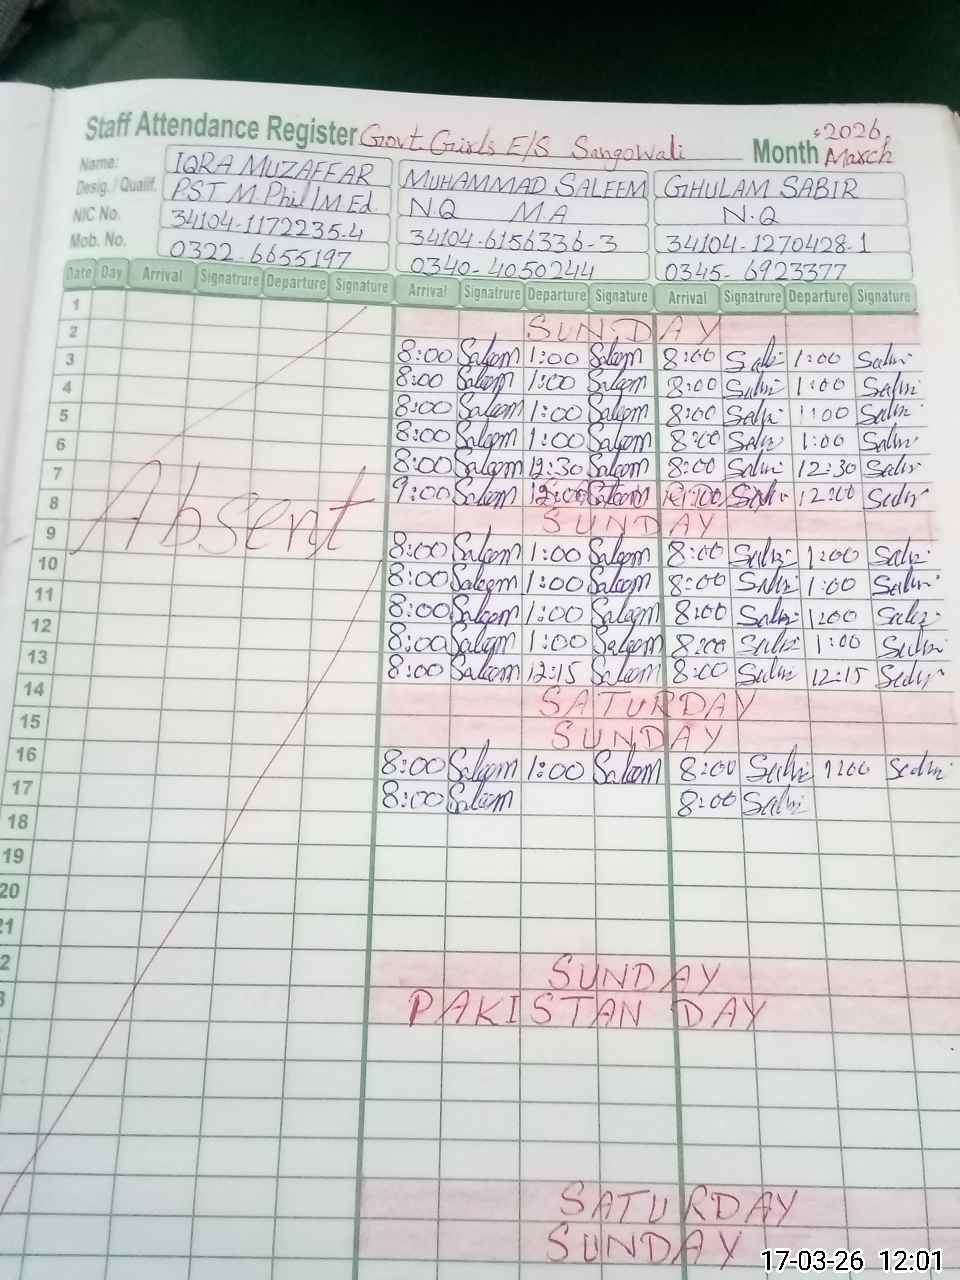 Staff Attendance Register Govt. Girls E/S Sangowali Month March 2026
Name: IQRA MUZAFFAR MUHAMMAD SALEEM GHULAM SABIR
Desig./ Qualif. PST M.Phil/M.Ed. N.Q MA N.Q
NIC No. 34104-1172235-4 34104-6156336-3 34104-1270428-1
Mob. No. 0322-6655197 0340-4050244 0345-6923377
Date Day Arrival Signatrure Departure Signature Arrival Signatrure Departure Signature Arrival Signatrure Departure Signature
1 SUNDAY
2 8:00 Saleem 1:00 Saleem 8:00 Sabir 1:00 Sabir
3 8:00 Saleem 1:00 Saleem 8:00 Sabir 1:00 Sabir
4 8:00 Saleem 1:00 Saleem 8:00 Sabir 1:00 Sabir
5 8:00 Saleem 1:00 Saleem 8:00 Sabir 1:00 Sabir
6 8:00 Saleem 12:30 Saleem 8:00 Sabir 12:30 Sabir
7 9:00 Saleem 12:00 Saleem Sabir 12:00 Sabir
8 Absent SUNDAY
9 8:00 Saleem 1:00 Saleem 8:00 Sabir 1:00 Sabir
10 8:00 Saleem 1:00 Saleem 8:00 Sabir 1:00 Sabir
11 8:00 Saleem 1:00 Saleem 8:00 Sabir 1:00 Sabir
12 8:00 Saleem 1:00 Saleem 8:00 Sabir 1:00 Sabir
13 8:00 Saleem 12:15 Saleem 8:00 Sabir 12:15 Sabir
14 SATURDAY
15 SUNDAY
16 8:00 Saleem 1:00 Saleem 8:00 Sabir 1:00 Sabir
17 8:00 Saleem 8:00 Sabir
18
19
20
21
2 SUNDAY
3 PAKISTAN DAY
SATURDAY
SUNDAY
17-03-26 12:01